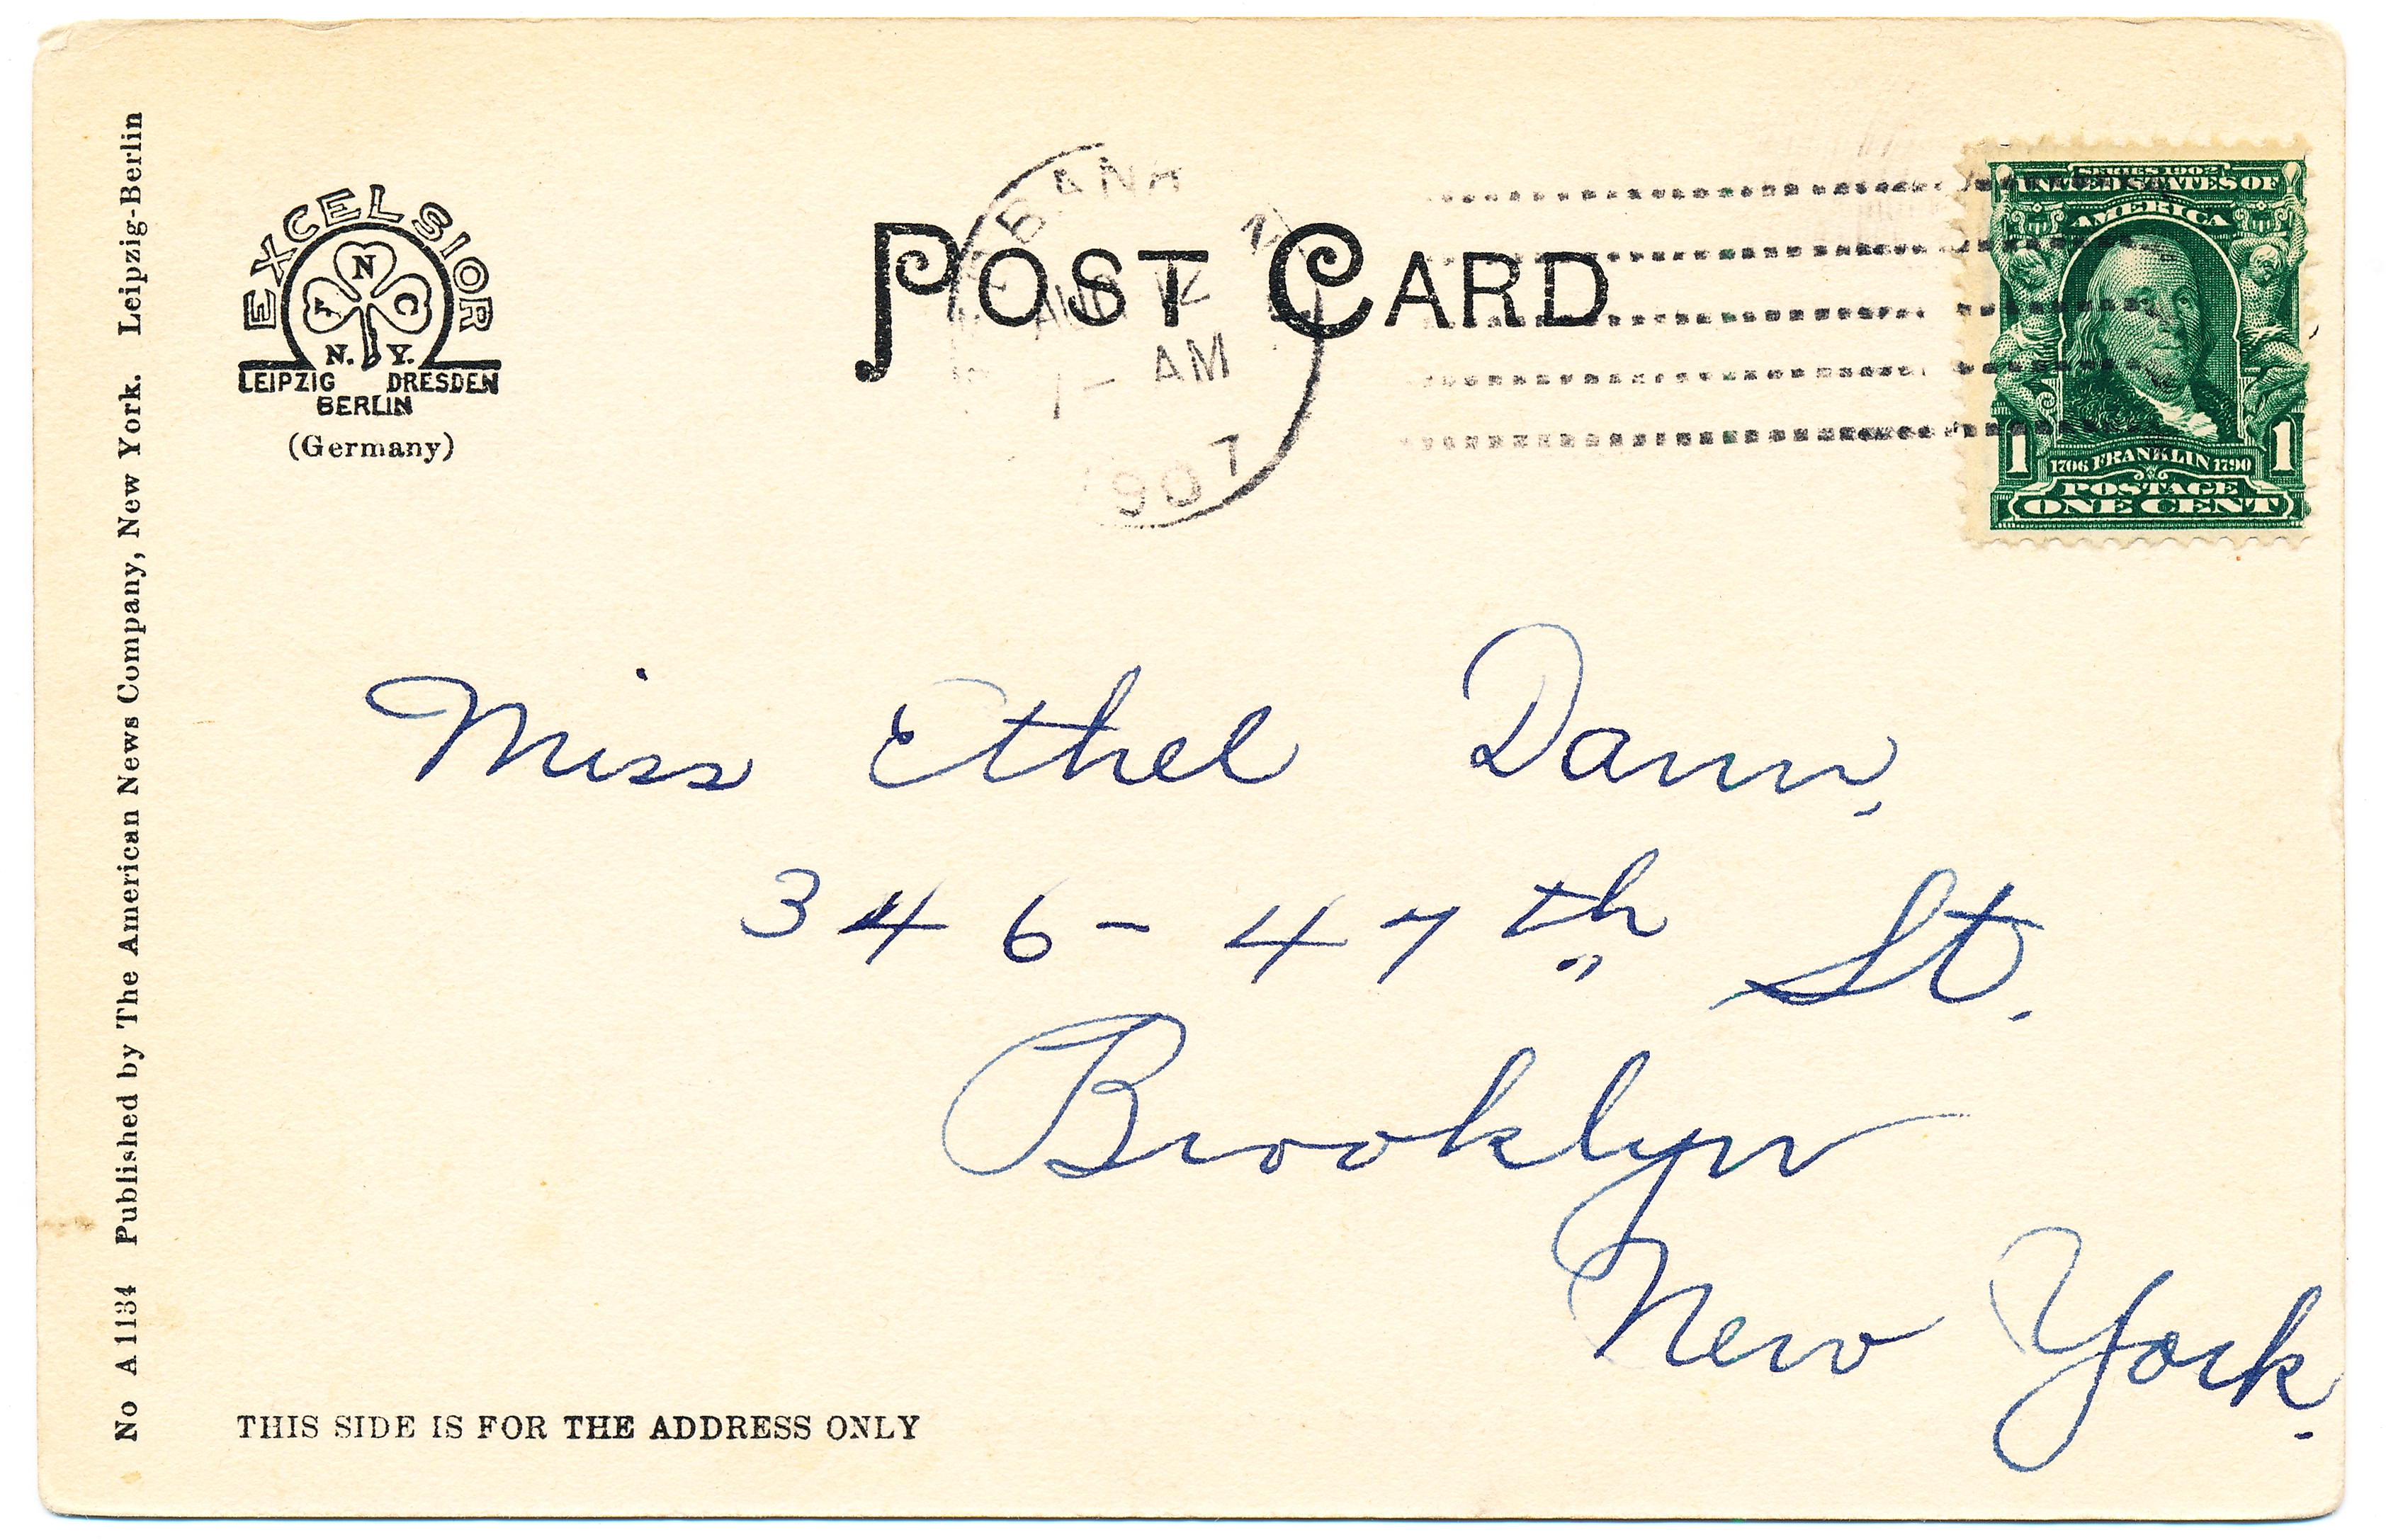 No A 1134 Published by The American News Company, New York. Leipzig-Berlin
EXCELSIOR
A N C
N. Y.
LEIPZIG DRESDEN
BERLIN
(Germany)
POST CARD
AM
1907
SERIES 1902
UNITED STATES OF
AMERICA
1 1
1706 FRANKLIN 1790
POSTAGE
ONE CENT
Miss Ethel Dann,
346 - 47th St.
Brooklyn
New York.
THIS SIDE IS FOR THE ADDRESS ONLY